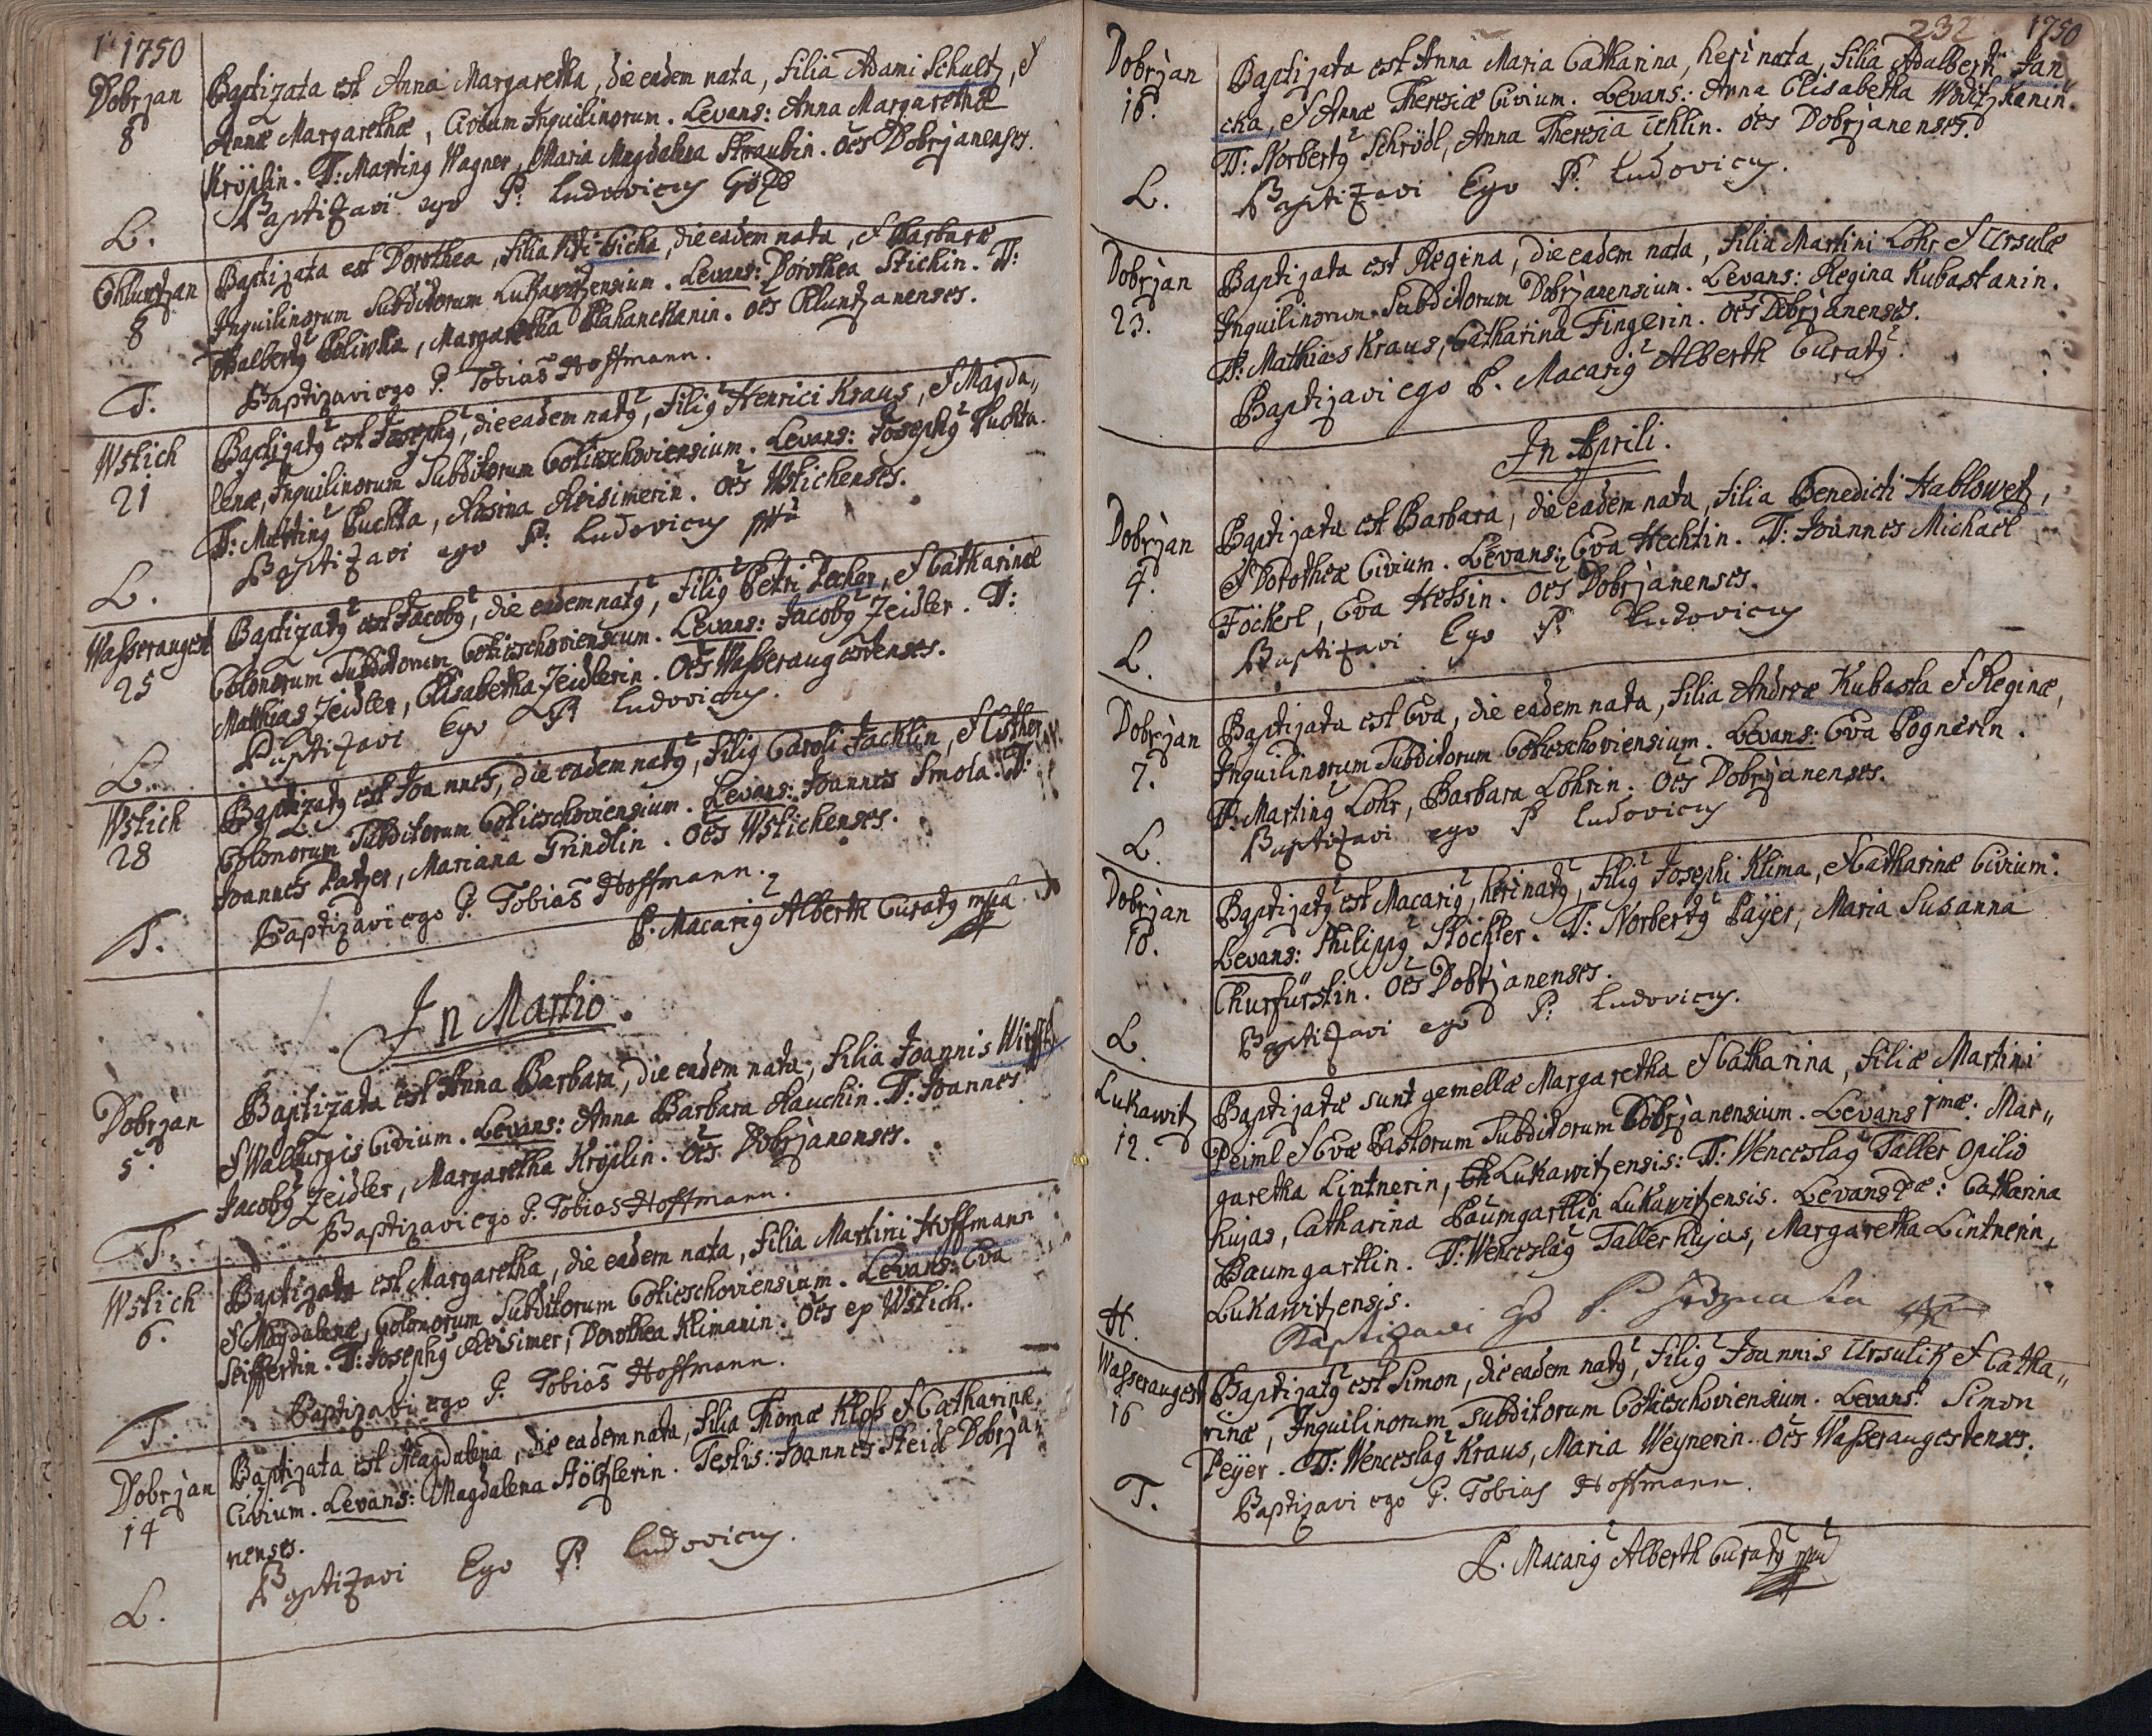 1750
Dobrzan
8
Baptizata est Anna Margaretha, die eadem nata, filia Adami Schultz, &
Annæ Margarethæ, Civium Inquilinorum. Levans: Anna Margaretha
Kröplin. TT: Martinq Wagner, Maria Magdalena Straubin. oes Dobrzanenses.
Baptizavi ego P. Ludovicus
L.
Chluntzan
8
Baptizata est Dorothea, filia Gicha, die eadem nata, & Barbaræ
Inquilinorum Subditorum Lukawitzensium. Levans: Dorothea Stichin. TT:
Adalbertq Poliwka, Margaretha oes Chluntzanenses.
Baptizavi ego P. Tobias Hoffmann.
T.
Wstich
21
Baptizatq est Josephq, die eadem natq, filiq Henrici Kraus, & Magda„
lenæ, Inquilinorum Subditorum Cotieschoviensium. Levans: Josephq Puchta.
TT: Martinq Puchta, Rosina Reisimerin. Oes Wstichenses.
Baptizavi ego P. Ludovicus
L.
Wasseraugest
25
Baptizatq est Jacobq, die eadem natq, filiq Petri Pecher, & Catharinæ
Colonorum Subditorum Cotieschoviensium. Levans: Jacobq Zeidler. TT:
Matthias Zeidler, Elisabetha Zeidlerin. Oes Wasseraugestenses.
Baptizavi Ego P. Ludovicus.
L.
Wstich
28
Baptizatq est Joannes, die eadem natq, filiq Caroli Jacklin, &
Colonorum Subditorum Cotieschoviensium. Levans: Joannes Smola. TT:
Joannes Patzer, Mariana Grindlin. Oes Wstichenses.
Baptizavi ego P. Tobias Hoffmann.
P. Macariq Alberth Curatq mpa
T.
In Martio.
Dobrzan
5.
Baptizata est Anna Barbara, die eadem nata, filia Joannis
& Walburgis Civium. Levans: Anna Barbara Rauchin. TT: Joannes
Jacobq Zeidler, Margaretha Kröplin. Oes Dobrzanenses.
Baptizavi ego P. Tobias Hoffmann.
T.
Wstich
6.
Baptizata est Margaretha, die eadem nata, filia Martini Hoffmann
& Magdalenæ, Colonorum Subditorum Cotieschoviensium. Levans: Eva
Seiffertin. TT: Josephq Reisimer, Dorothea Klimanin. Oes ex Wstich.
Baptizavi ego P. Tobias Hoffmann.
T.
Dobrzan
14
Baptizata est Magdalena, die eadem nata, filia Thomæ Kloss & Catharinæ,
Civium. Levans: Magdalena Stöltzlerin. Testis: Joannes Steidl Dobrza„
nenses.
Baptizavi Ego P. Ludovicus.
L.
232 1750
Dobrzan
16.
Baptizata est Anna Maria Catharina, heri nata, filia Adalberti Jan„
cka, & Annæ Theresiæ Civium. Levans: Anna Elisabetha Woditzkanin.
TT: Norbertq Schrödl, Anna Theresia Ichlin. oes Dobrzanenses.
Baptizavi Ego P. Ludovicus.
L.
Dobrzan
23.
Baptizata est Regina, die eadem nata, filia Martini Lohr & Ursulæ
Inquilinorum Subditorum Dobrzanensium. Levans: Regina Kubastanin.
TT: Mathias Kraus, Catharina Fingerin. Oes Dobrzanenses.
Baptizavi ego P. Macariq Alberth Curatq.
In Aprili.
Dobrzan
4.
Baptizata est Barbara, die eadem nata, filia Benedicti Hablowetz,
& Dorotheæ Civium. Levans: Eva Hechtin. TT: Joannes Michael
Föckerl, Eva Hessin. Oes Dobrzanenses.
Baptizavi Ego P. Ludovicus
L.
Dobrzan
7.
Baptizata est Eva, die eadem nata, filia Andreæ Kubasta & Reginæ,
Inquilinorum Subditorum Cotieschoviensium. Levans: Eva Pognerin.
TT: Martinq Lohr, Barbara Lohrin. Oes Dobrzanenses.
Baptizavi ego P. Ludovicus
L.
Dobrzan
10.
Baptizatq est Macariq, heri natq, filiq Josephi Klima, & Catharinæ Civium.
Levans: Philippq Stöchler. TT: Norbertq Payer, Maria Susanna
Churfürstin. Oes Dobrzanenses.
Baptizavi ego P. Ludovicus.
L.
Lukawitz
12.
Baptizatæ sunt gemellæ Margaretha & Catharina, filiæ Martini
Peiml & Evæ Pastorum Subditorum Dobrzanensium. Levans 1mæ: Mar„
garetha Lintnerin, Lukawitzensis: TT: Wenceslaq Taller Opilio
hujas, Catharina Paumgartlin Lukawitzensis. Levans 2æ: Catharina
Baumgartlin. TT: Wenceslaq Taller hujas, Margaretha Lintnerin,
Lukawitzensis.
Baptizavi Ego P.
H.
Wasseraugest
16
Baptizatq est Simon, die eadem natq, filiq Joannis Ursulik & Catha„
rinæ, Inquilinorum Subditorum Cotieschoviensium. Levans: Simon
Peÿer. TT: Wenceslaq Kraus, Maria Weynerin. Oes Wasseraugestenses.
Baptizavi ego P. Tobias Hoffmann.
T.
P. Macariq Alberth Curatq mpa